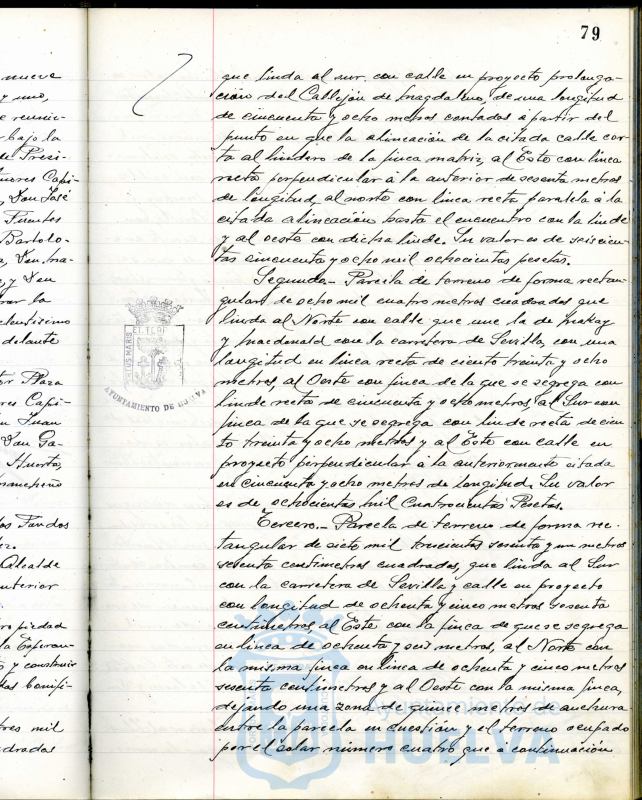 79
nueve
y uno,
e reunie-
bajo la
de Presi-
ñores Capi-
, Don José
Fuentes
Bartolo-
Don Ma-
y Don
rar la
celentísimo
delante
tor Plaza
res Capi-
Juan
Don Ga-
Huerta,
los Fondos
Alcalde
anterior
ropiedad
la Esperan-
y construir
das bonifi-
tres mil
adrados
que linda al sur con calle en proyecto prolonga-
ción del Callejón de Magdalena, de una longitud
de cincuenta y ocho metros contados a partir del
punto en que la alineación de la citada calle cor-
ta al lindero de la finca matriz, al Este con linea
recta perpendicular á la anterior de sesenta metros
de longitud, al norte con linea recta paralela á la
citada alineación hasta el encuentro con la linde
y al oeste con dicha linde. Su valor es de seiscien-
tas cincuenta y ocho mil ochocientas pesetas.
Segundo.- Parcela de terreno de forma rectan-
gular de ocho mil cuatro metros cuadrados que
linda al Norte con calle que une la de Mackay
y Macdonald con la carretera de Sevilla, con una
longitud en linea recta de ciento treinta y ocho
metros, al Oeste con finca de la que se segrega con
linde recta de cincuenta y ocho metros, al Sur con
finca de la que se segrega con linde recta de cien-
to treinta y ocho metros y al Este con calle en
proyecto perpendicular á la anteriormente citada
en cincuenta y ocho metros de longitud. Su valor
es de ochocientas mil Cuatrocientas Pesetas.
Tercero.- Parcela de terreno de forma rec-
tangular de siete mil trescientos sesenta y un metros
sesenta centímetros cuadrados, que linda al Sur
con la carretera de Sevilla y calle en proyecto
con longitud de ochenta y cinco metros sesenta
centímetros, al Este con la finca de que se segrega
en linea de ochenta y seis metros, al Norte con
la misma finca en linea de ochenta y cinco metros
sesenta centímetros y al Oeste con la misma finca,
dejando una zona de quince metros de anchura
entre la parcela en cuestión y el terreno ocupado
por el solar número cuatro que á continuación
AYUNTAMIENTO DE HUELVA
Ayuntamiento de
HUELVA